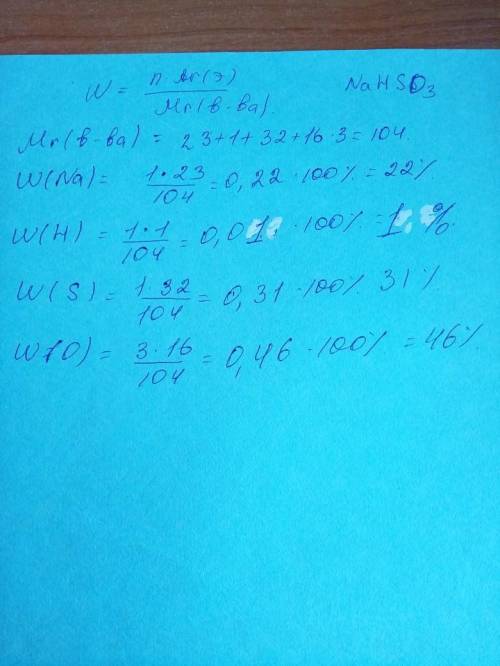 W = n·Ar(э) / Mr(в-ва). NaHSO3
Mr(в-ва) = 23+1+32+16·3=104.
W(Na)= 1·23/104 = 0,22·100% = 22%
W(H) = 1·1/104 = 0,01·100% = 1%.
W(S) = 1·32/104 = 0,31·100% 31%
W(O) = 3·16/104 = 0,46·100% = 46%